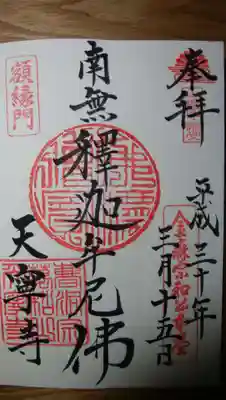 奉拝
平成三十年
三月十五日
南無釋迦牟尼佛
額縁門
天寧寺